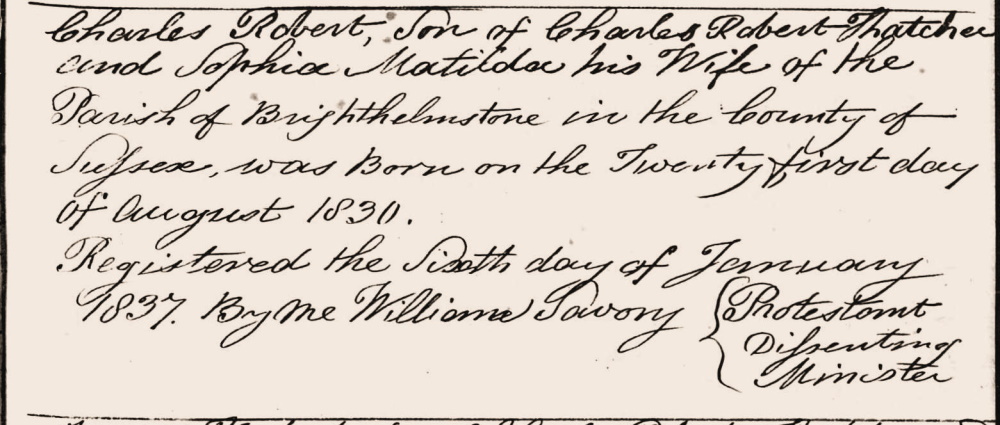 Charles Robert, Son of Charles Robert Thatcher
and Sophia Matilda his Wife of the
Parish of Brighthelmstone in the County of
Sussex, was Born on the Twenty first day
of August 1830.
Registered the Sixth day of January
1837. By me William Savory { Protestant
Dissenting
Minister